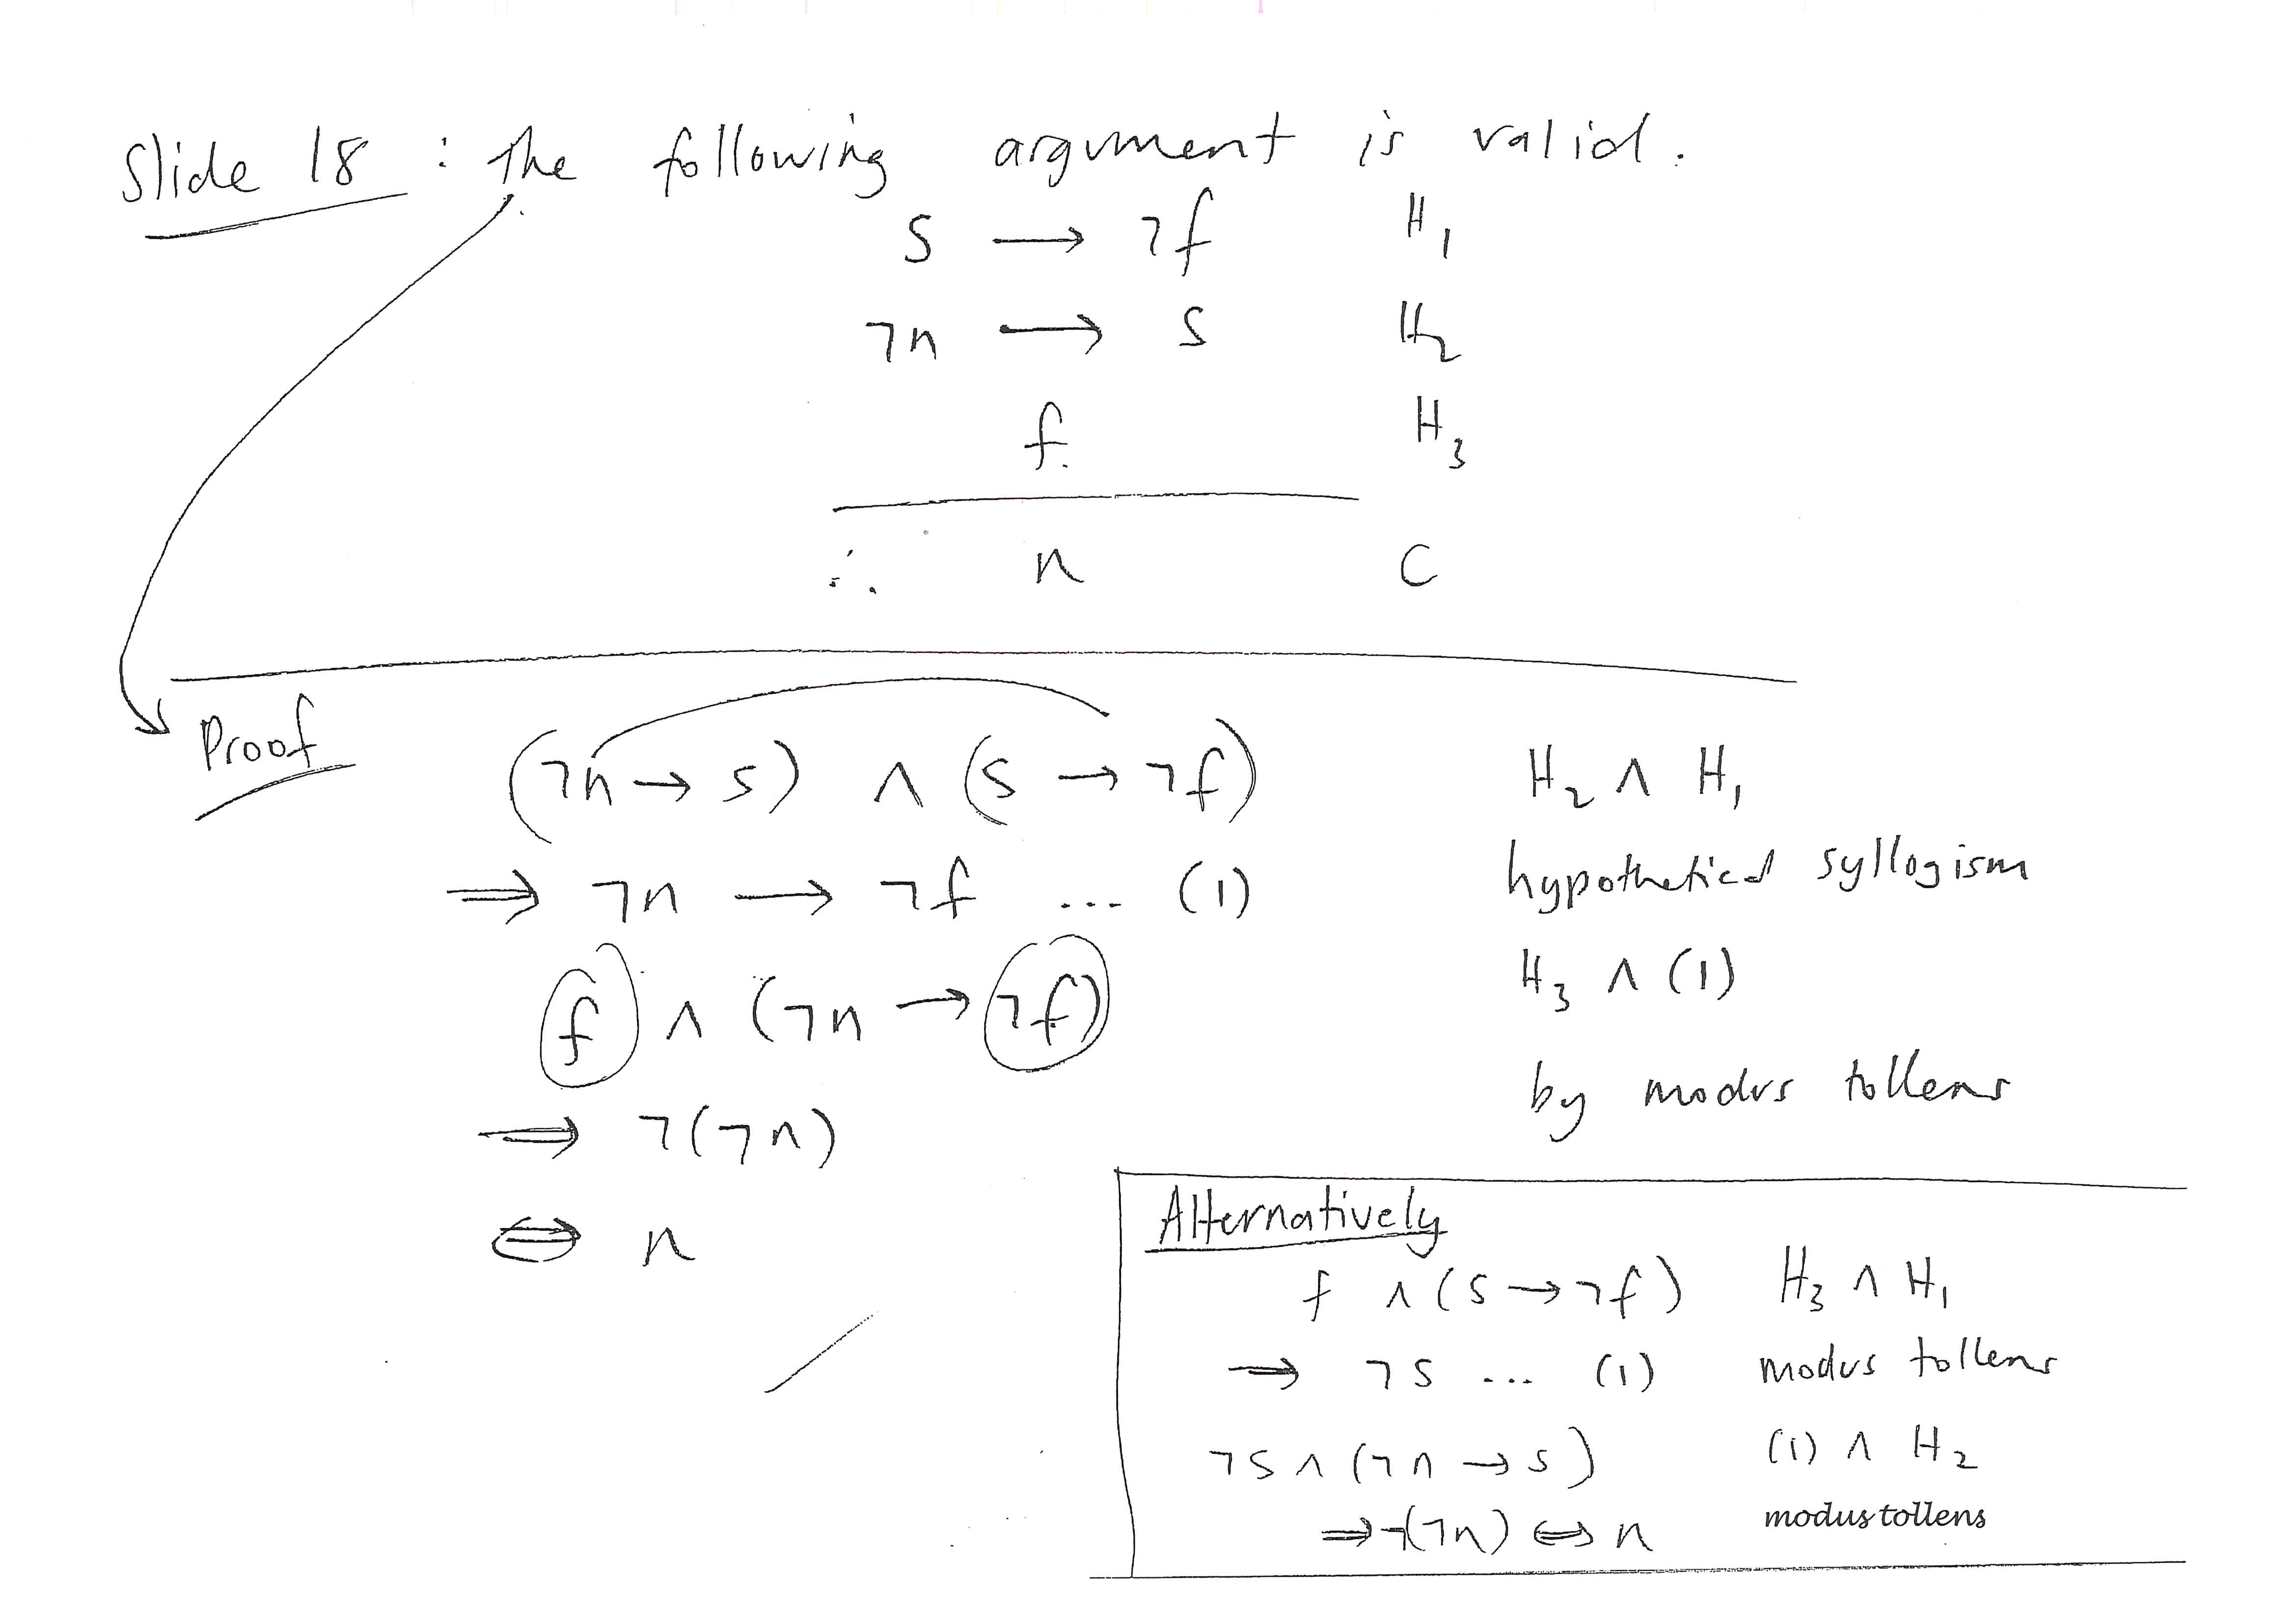 Slide 18 : The following argument is valid.
s → ¬f H₁
¬n → s H₂
f. H₃
∴ n C
Proof (¬n → s) ∧ (s → ¬f) H₂ ∧ H₁
⇒ ¬n → ¬f ... (1) hypothetical syllogism
f ∧ (¬n → ¬f) H₃ ∧ (1)
⇒ ¬(¬n) by modus tollens
⇔ n
Alternatively
f ∧ (s → ¬f) H₃ ∧ H₁
⇒ ¬s ... (1) modus tollens
¬s ∧ (¬n → s) (1) ∧ H₂
⇒ ¬(¬n) ⇔ n modus tollens